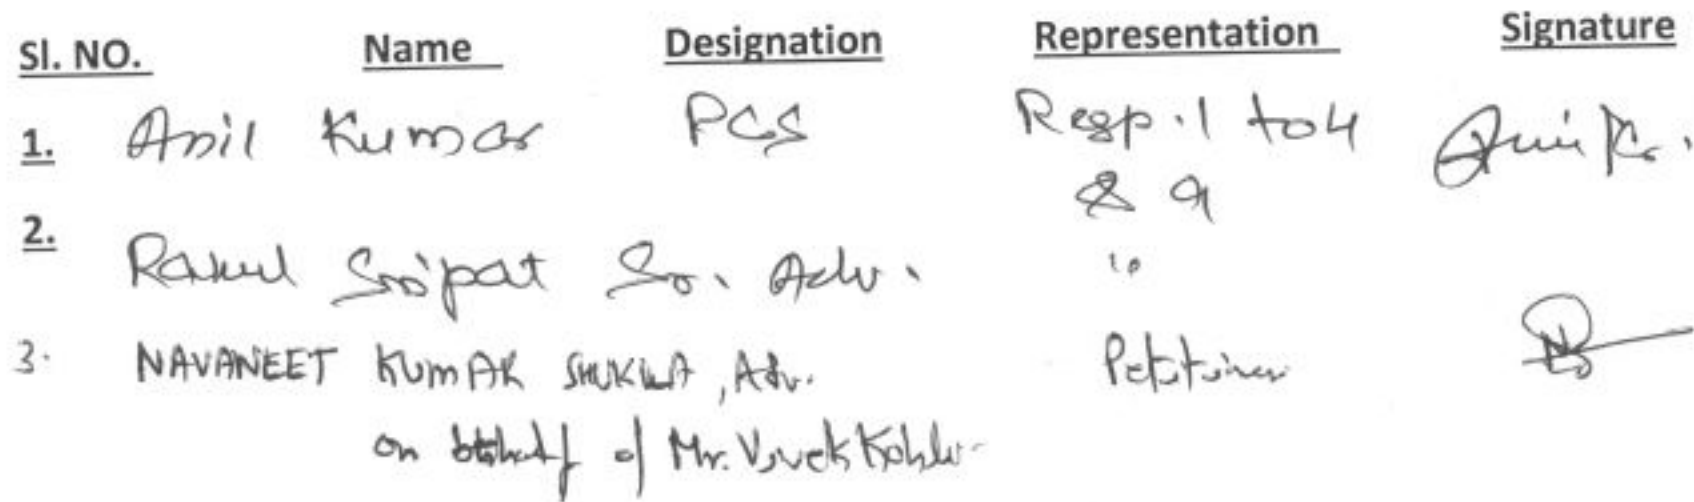 Sl. NO. Name Designation Representation Signature
1. Anil Kumar PCS Resp. 1 to 4
& 9
2. Rahul Sripat Sr. Adv. "
3. NAVANEET KUMAR SHUKLA, Adv. Petitioner
on behalf of Mr. Vivek Kohli